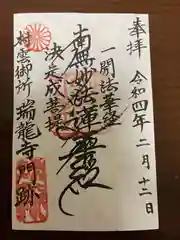 奉拝
令和四年二月十二日
一開法華経
南無妙法蓮華経
決定成菩提
村雲御所
瑞龍寺門跡